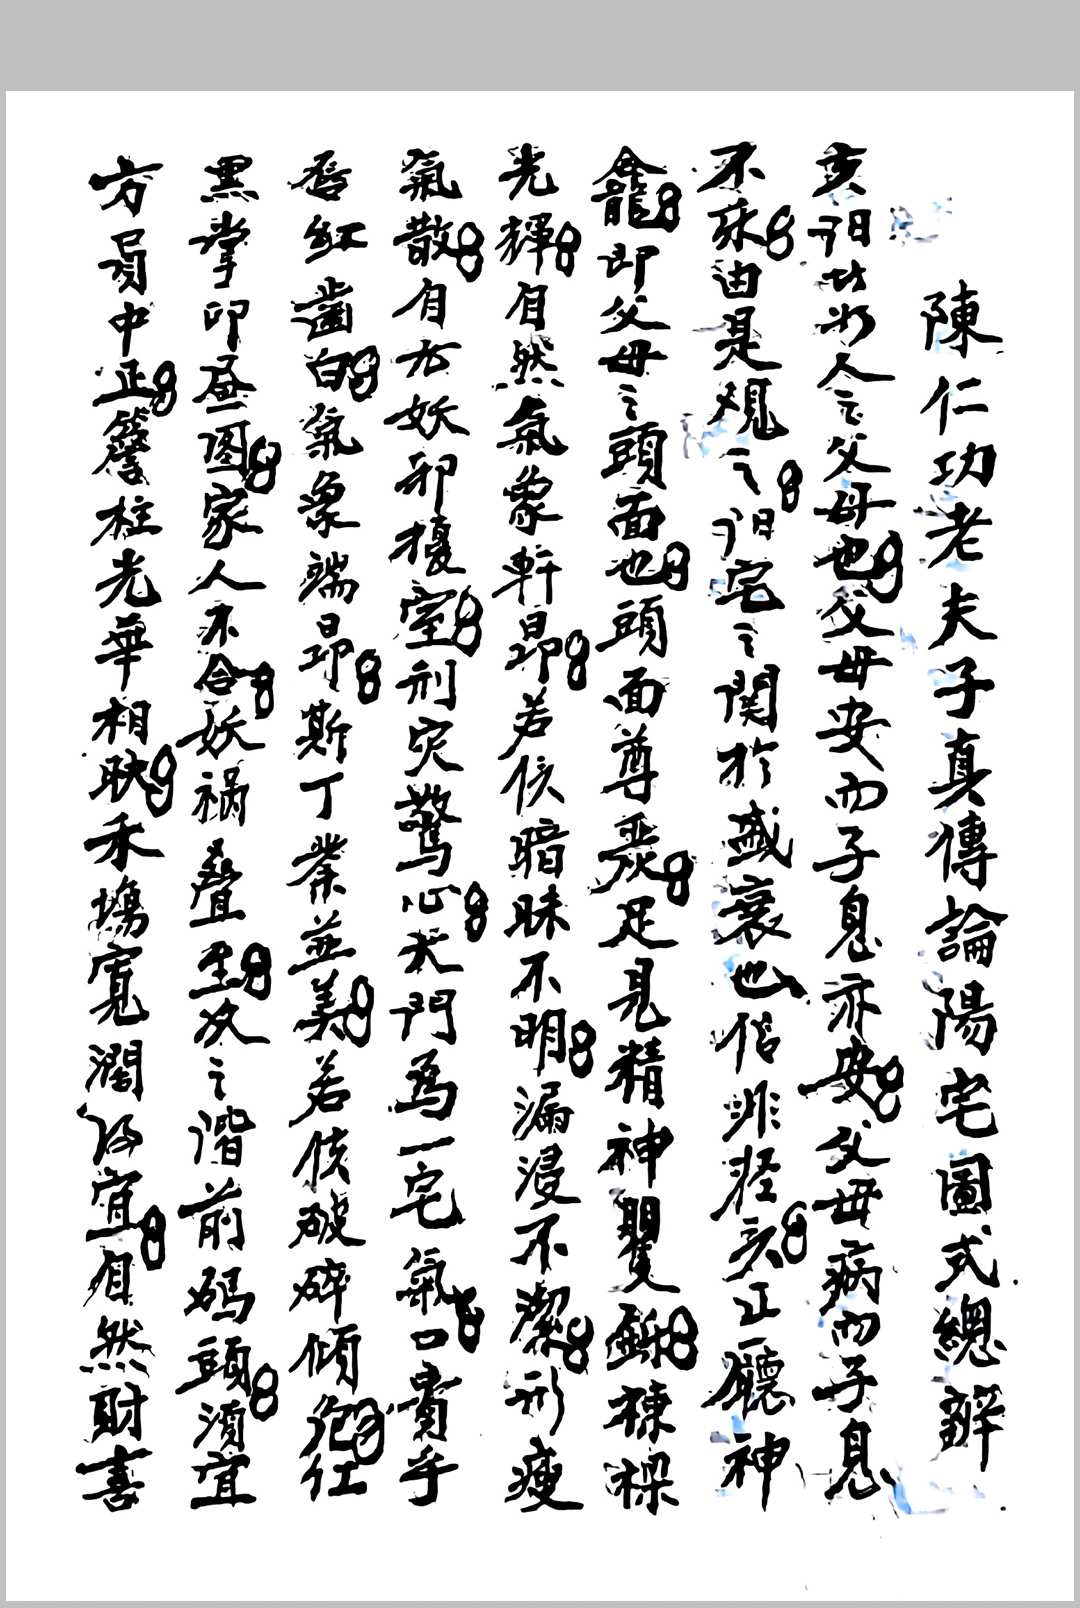 陳仁功老夫子真傳論陽宅圖式總辨
亥阳坊乃人之父母也父母安而子息亦安父母病而子息
不苏由是观之阳宅之関於盛衰也信非轻矣正廳神
龕即父母之頭面也頭面尊嚴足見精神瞿鑠棟樑
光輝自然氣象軒昂若侅暗昧不明漏浸不潔形瘦
氣散自尤妖邪擾室刑灾驚心大門為一宅氣口貴乎
唇紅齒白氣象端昂斯丁業並美若侅破碎傾危仕
黑掌卯昼图家人不合妖祸叠生次之谐前码頭須宜
方員中正簷柱光華相映禾塲寬濶得宜自然財喜